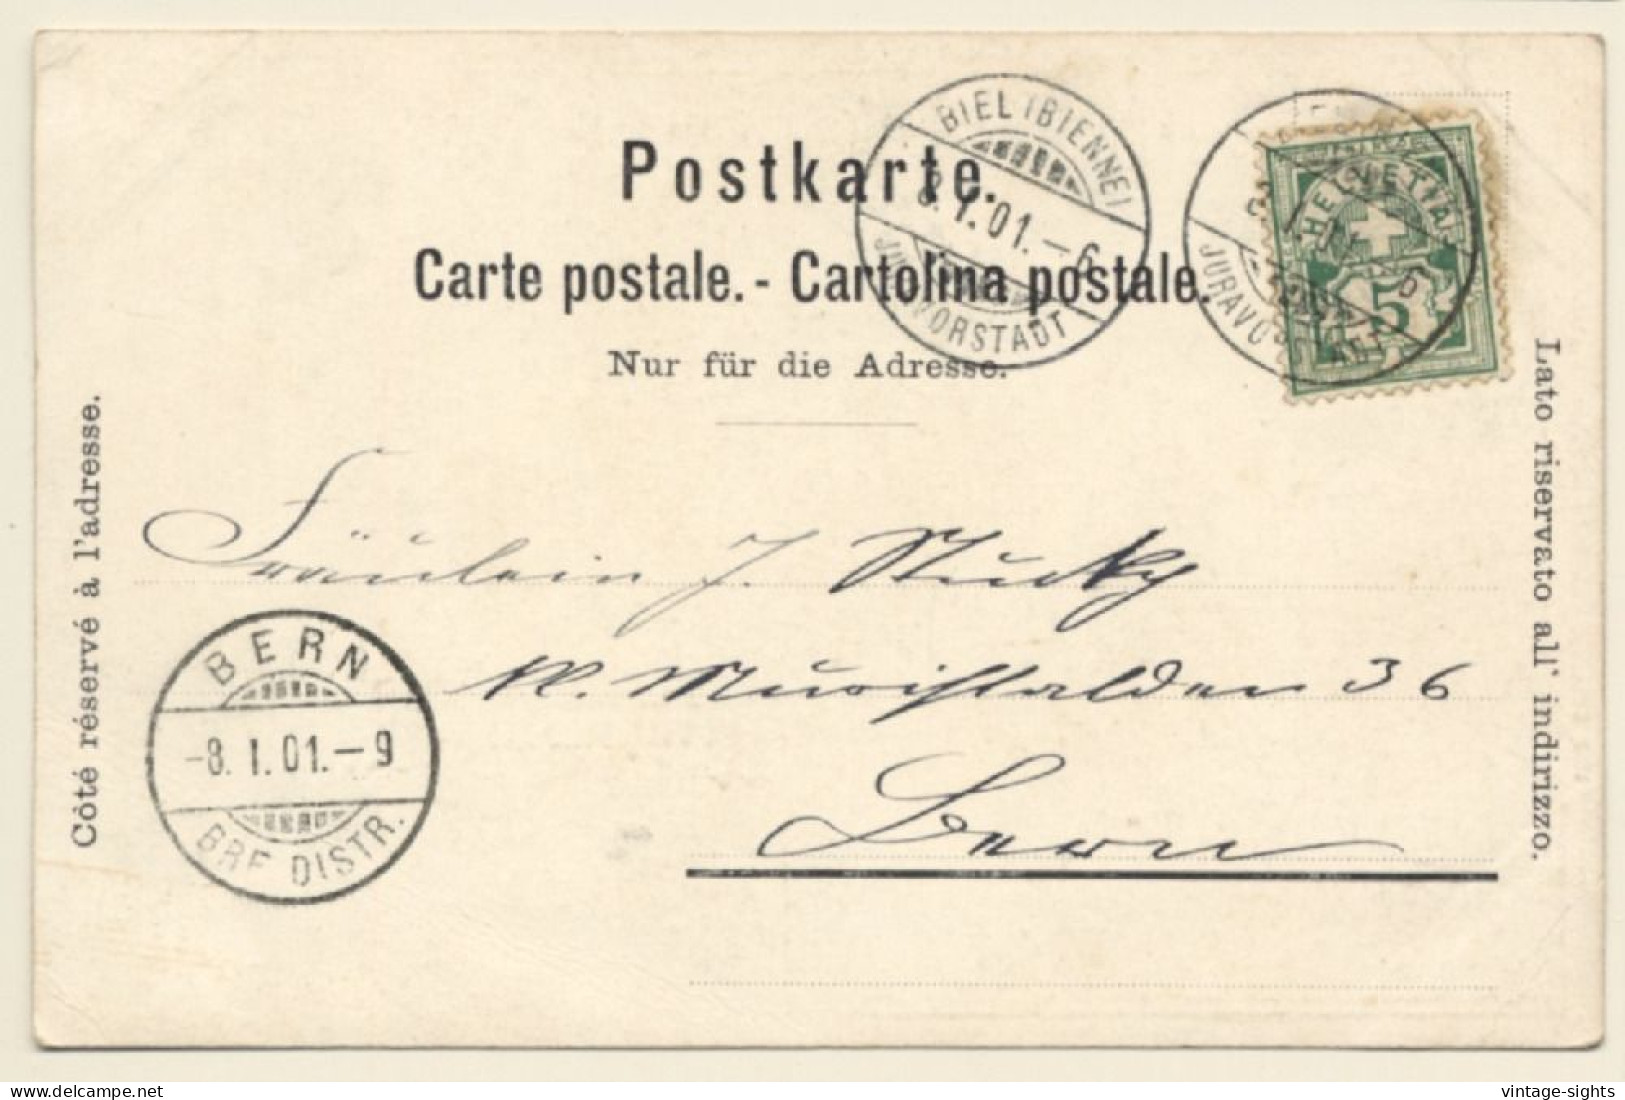 BIEL (BIENNE)
8. I. 01. – 6
JURAVORSTADT
HELVETIA
5
JURAVORSTADT
Postkarte.
Carte postale. - Cartolina postale.
Nur für die Adresse.
Côté réservé à l'adresse.
Lato riservato all' indirizzo.
Fräulein J. Stucky
Kl. Muristalden 36
Bern
BERN
-8. I. 01. – 9
BRF DISTR.
vintage-sights